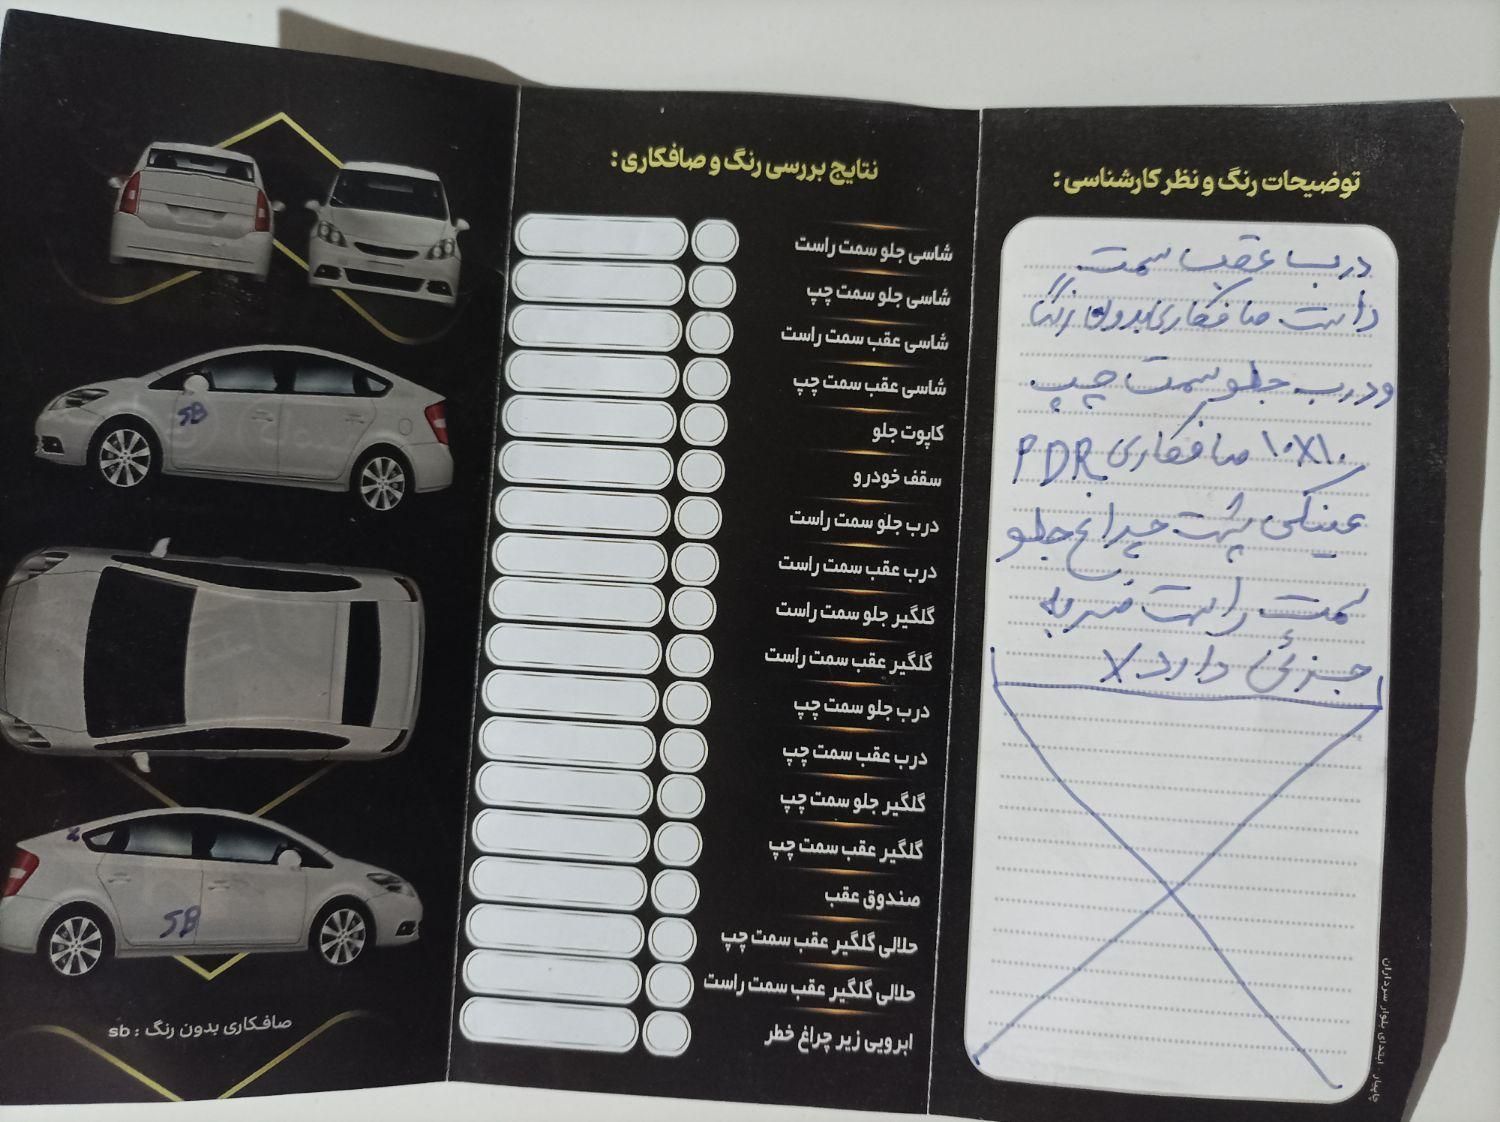 توضیحات رنگ و نظر کارشناسی :
درب عقب سمت
راست صافکاری بدون رنگ
و درب جلو سمت چپ
۱۰X۱۰ صافکاری PDR
عینکی پشت چراغ جلو
سمت راست ضربه
جزئی دارد X
چاپیار - ابتدای بلوار سرداران
نتایج بررسی رنگ و صافکاری :
شاسی جلو سمت راست
شاسی جلو سمت چپ
شاسی عقب سمت راست
شاسی عقب سمت چپ
کاپوت جلو
سقف خودرو
درب جلو سمت راست
درب عقب سمت راست
گلگیر جلو سمت راست
گلگیر عقب سمت راست
درب جلو سمت چپ
درب عقب سمت چپ
گلگیر جلو سمت چپ
گلگیر عقب سمت چپ
صندوق عقب
حلالی گلگیر عقب سمت چپ
حلالی گلگیر عقب سمت راست
ابرویی زیر چراغ خطر
SB
SB
صافکاری بدون رنگ : sb